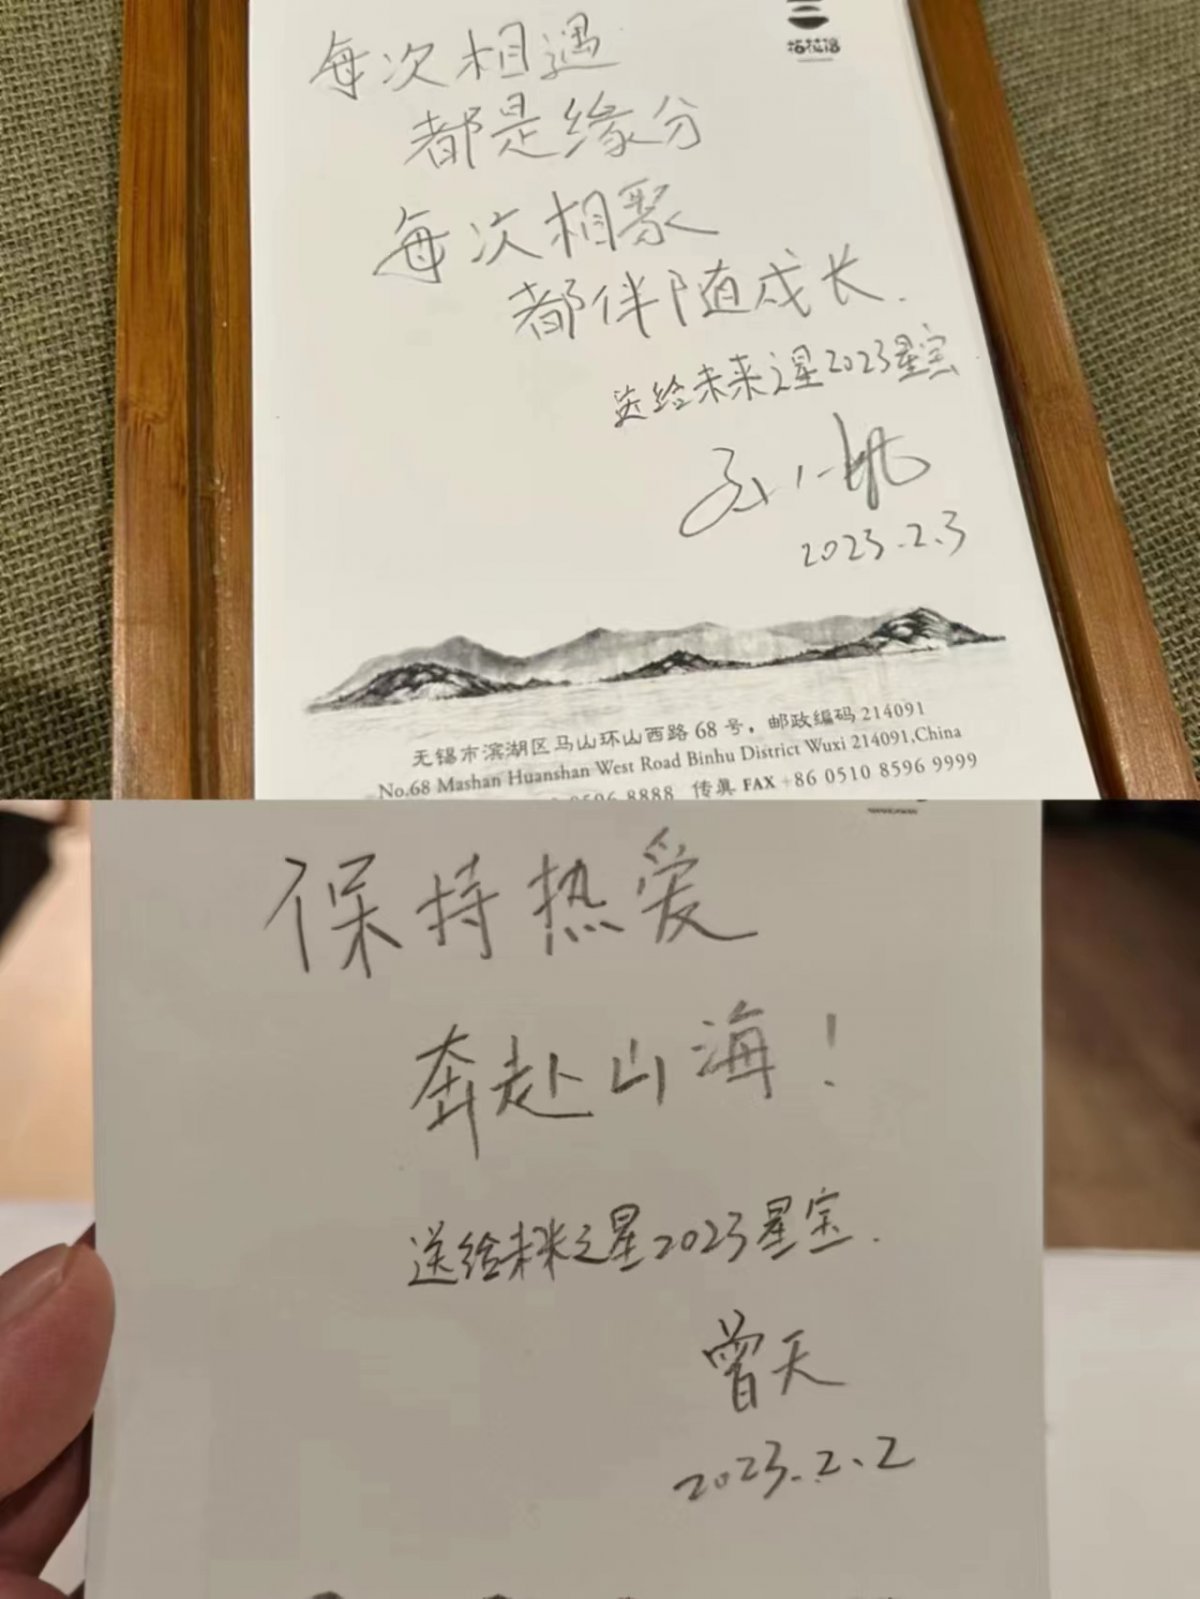 拈花湾
每次相遇
都是缘分
每次相聚
都伴随成长.
送给未来之星2023星宝
2023.2.3
无锡市滨湖区马山环山西路 68 号，邮政编码 214091
No.68 Mashan Huanshan West Road Binhu District Wuxi 214091,China
8596 8888 传真 FAX +86 0510 8596 9999
保持热爱
奔赴山海!
送给未来之星2023星宝.
曾天
2023.2.2